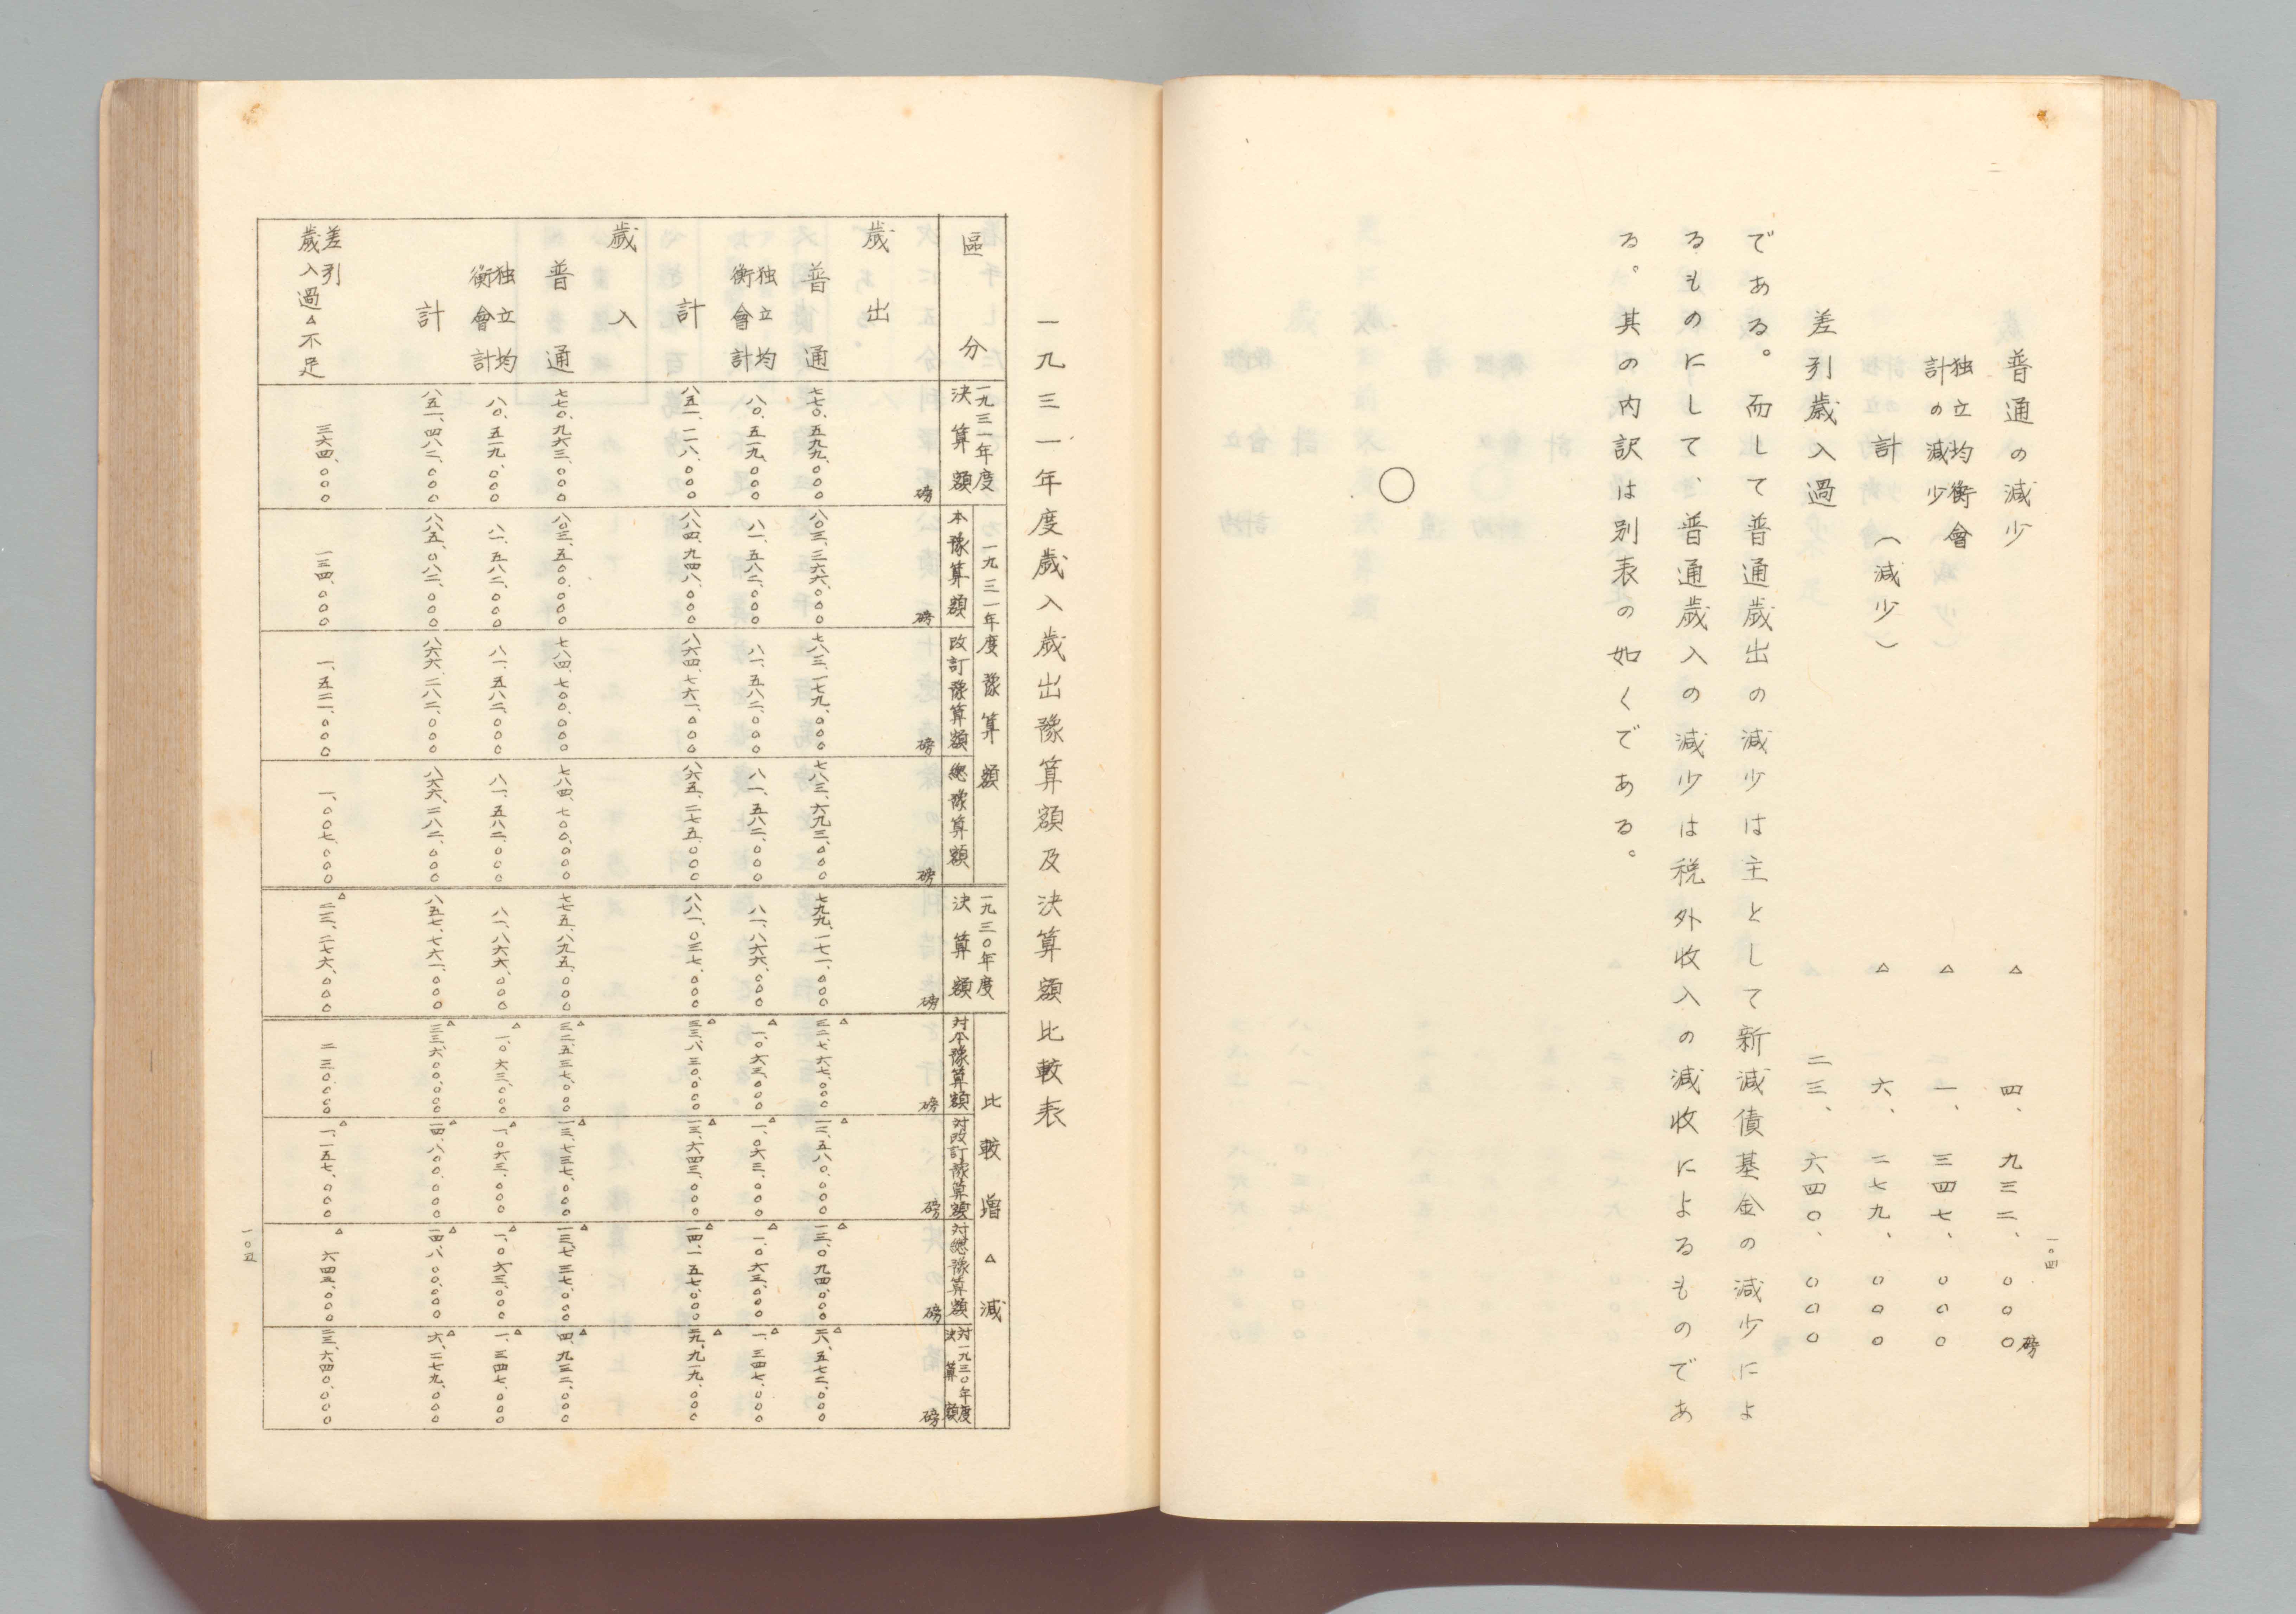 一〇四
普通の減少　△　四、九三二、〇〇〇磅
独立均衡會計の減少　△　一、三四七、〇〇〇
計（減少）　△　六、二七九、〇〇〇
差引歲入過　二三、六四〇、〇〇〇
である。而して普通歲出の減少は主として新減債基金の減少によ
るものにして、普通歲入の減少は税外收入の減收によるものであ
る。其の内訳は別表の如くである。
○
一九三一年度歲入歲出豫算額及決算額比較表
區分　一九三一年度決算額　一九三一年度豫算額　本豫算額　改訂豫算額　總豫算額　一九三〇年度決算額　比較增△減　対本豫算額　対改訂豫算額　対總豫算額　対一九三〇年度決算額
磅　磅　磅　磅　磅　磅　磅　磅　磅
歲出
普通　七七〇、五九九、〇〇〇　八〇三、三六六、〇〇〇　七八三、一七九、〇〇〇　七八三、六九三、〇〇〇　七九九、一七一、〇〇〇　△三二、七六七、〇〇〇　△一二、五八〇、〇〇〇　△一三、〇九四、〇〇〇　△二八、五七二、〇〇〇
独立均衡會計　八〇、五一九、〇〇〇　八一、五八二、〇〇〇　八一、五八二、〇〇〇　八一、五八二、〇〇〇　八一、八六六、〇〇〇　△一、〇六三、〇〇〇　△一、〇六三、〇〇〇　△一、〇六三、〇〇〇　△一、三四七、〇〇〇
計　八五一、一一八、〇〇〇　八八四、九四八、〇〇〇　八六四、七六一、〇〇〇　八六五、二七五、〇〇〇　八八一、〇三七、〇〇〇　△三三、八三〇、〇〇〇　△一三、六四三、〇〇〇　△一四、一五七、〇〇〇　△二九、九一九、〇〇〇
歲入
普通　七七〇、九六三、〇〇〇　八〇三、五〇〇、〇〇〇　七八四、七〇〇、〇〇〇　七八四、七〇〇、〇〇〇　七七五、八九五、〇〇〇　△三二、五三七、〇〇〇　△一三、七三七、〇〇〇　△一三、七三七、〇〇〇　△四、九三二、〇〇〇
独立均衡會計　八〇、五一九、〇〇〇　八一、五八二、〇〇〇　八一、五八二、〇〇〇　八一、五八二、〇〇〇　八一、八六六、〇〇〇　△一、〇六三、〇〇〇　△一、〇六三、〇〇〇　△一、〇六三、〇〇〇　△一、三四七、〇〇〇
計　八五一、四八二、〇〇〇　八八五、〇八二、〇〇〇　八六六、二八二、〇〇〇　八六六、二八二、〇〇〇　八五七、七六一、〇〇〇　△三三、六〇〇、〇〇〇　△一四、八〇〇、〇〇〇　△一四、八〇〇、〇〇〇　△六、二七九、〇〇〇
差引歲入過△不足　三六四、〇〇〇　一三四、〇〇〇　一、五二一、〇〇〇　一、〇〇七、〇〇〇　△二三、二七六、〇〇〇　二三〇、〇〇〇　△一、一五七、〇〇〇　△六四三、〇〇〇　二三、六四〇、〇〇〇
一〇五